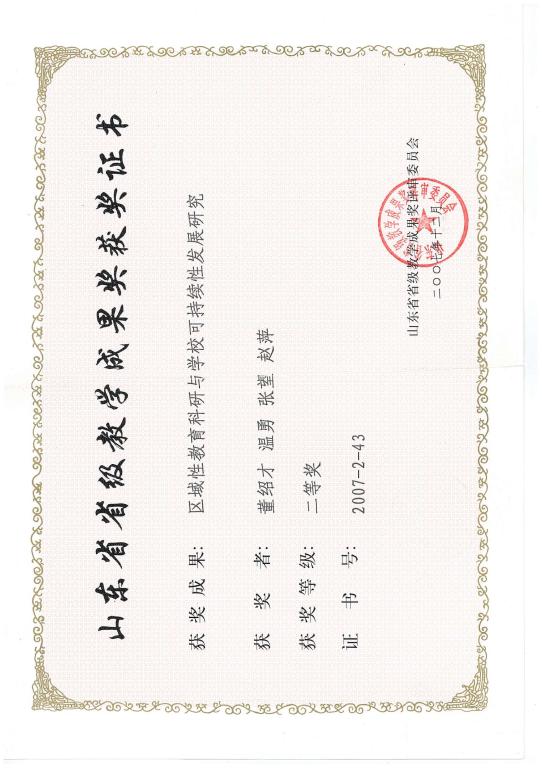 山东省省级教学成果奖获奖证书
获奖成果: 区域性教育科研与学校可持续性发展研究
获奖者: 董绍才 温勇 张望 赵萍
获奖等级: 二等奖
证书号: 2007-2-43
山东省省级教学成果奖评审委员会
二〇〇七年十二月